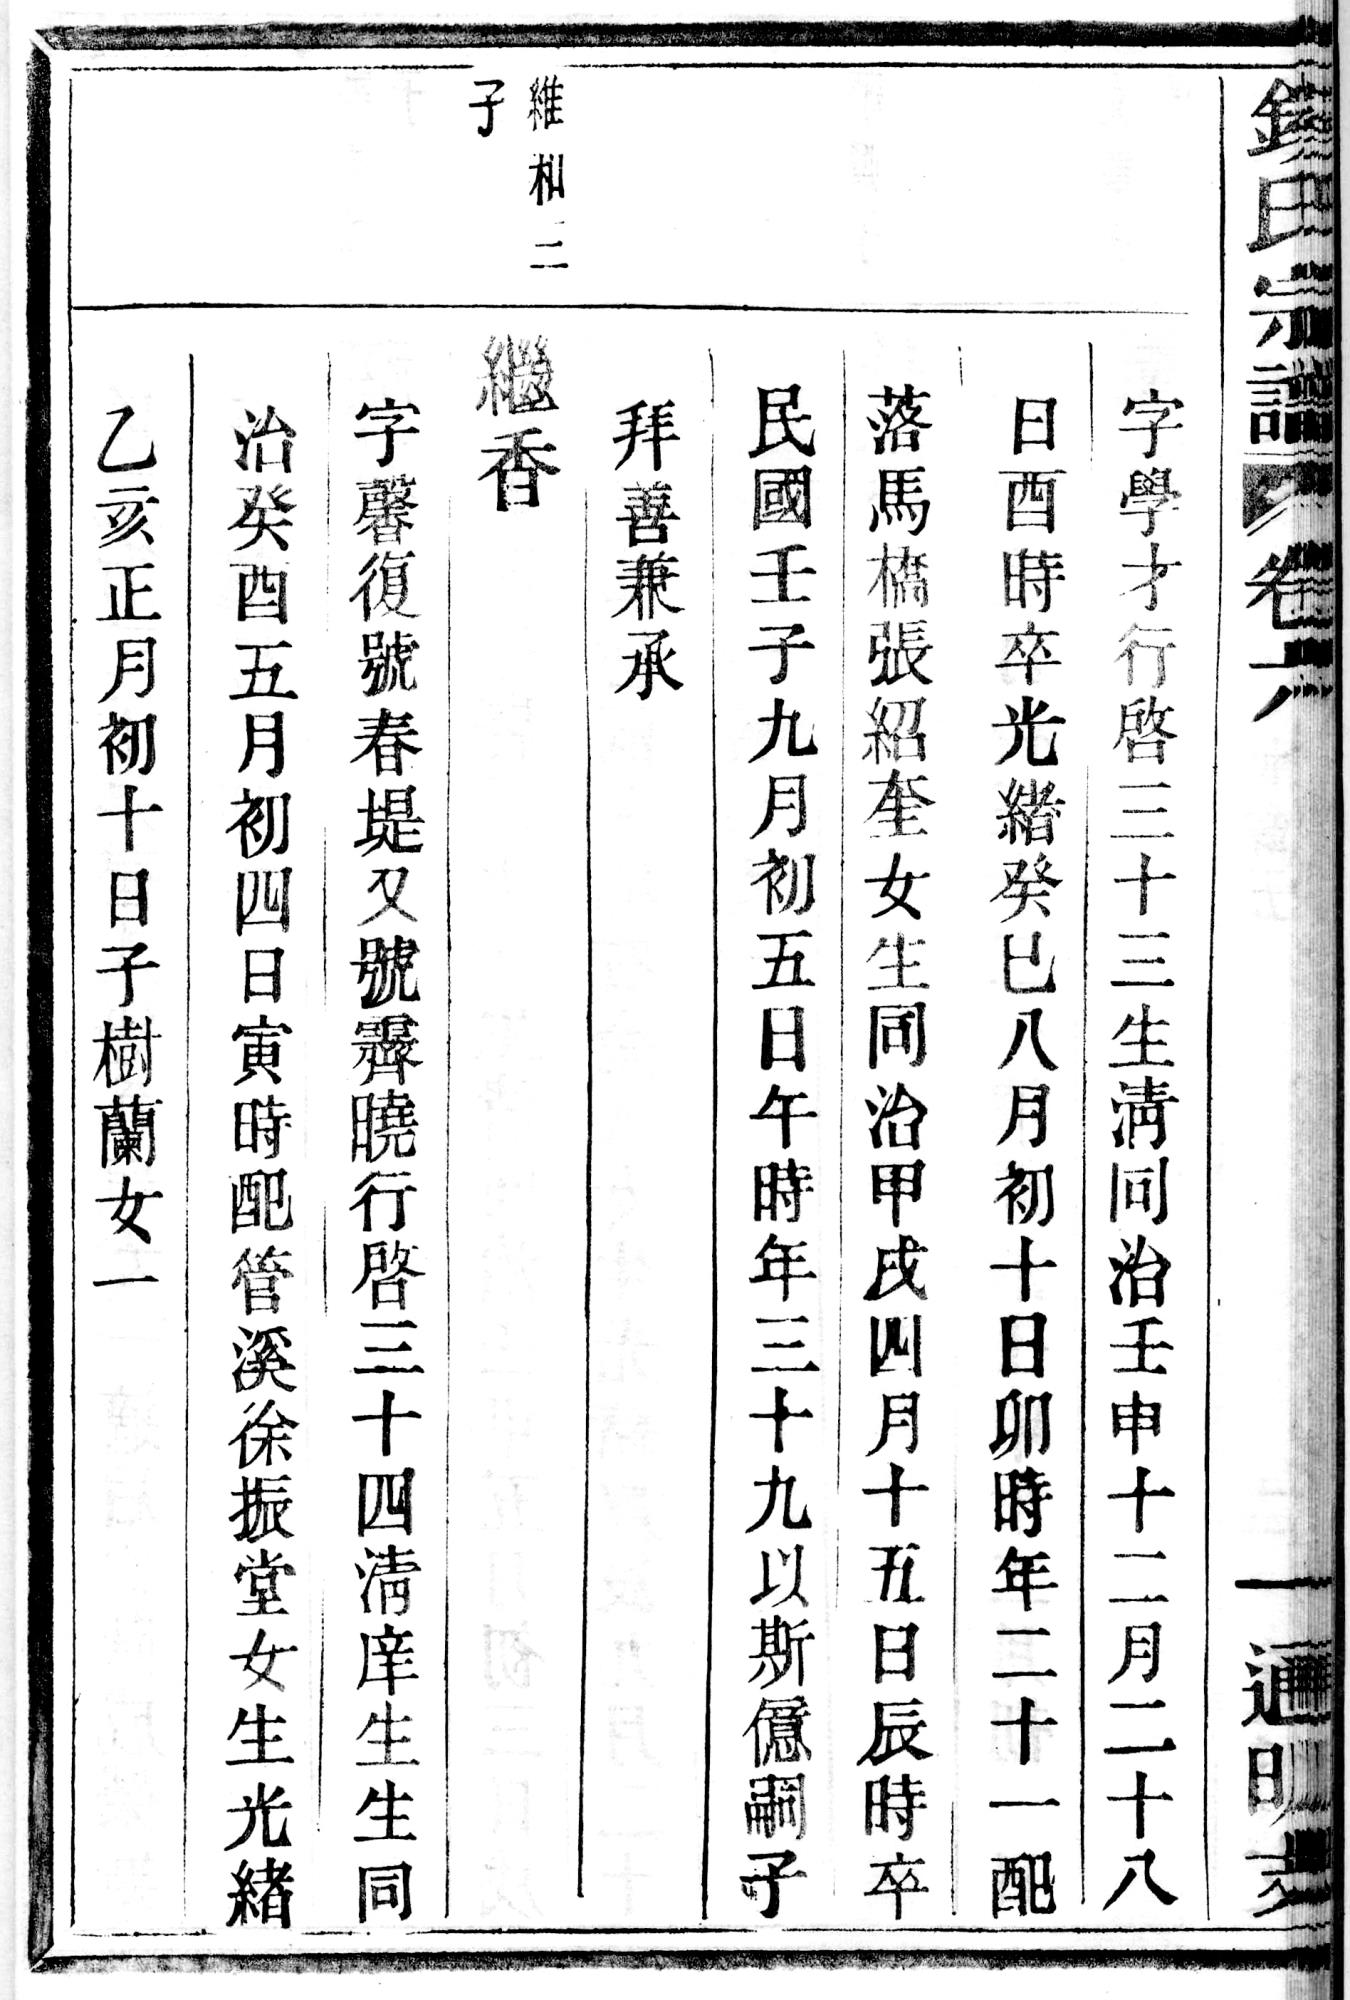 錢氏宗譜
卷六
一
通明支
字學才行啓三十三生清同治壬申十二月二十八
日酉時卒光緒癸巳八月初十日卯時年二十一配
落馬橋張紹奎女生同治甲戌四月十五日辰時卒
民國壬子九月初五日午時年三十九以斯億嗣子
拜善兼承
維和二
子
繼香
字馨復號春堤又號霽曉行啓三十四清庠生生同
治癸酉五月初四日寅時配管溪徐振堂女生光緒
乙亥正月初十日子樹蘭女一